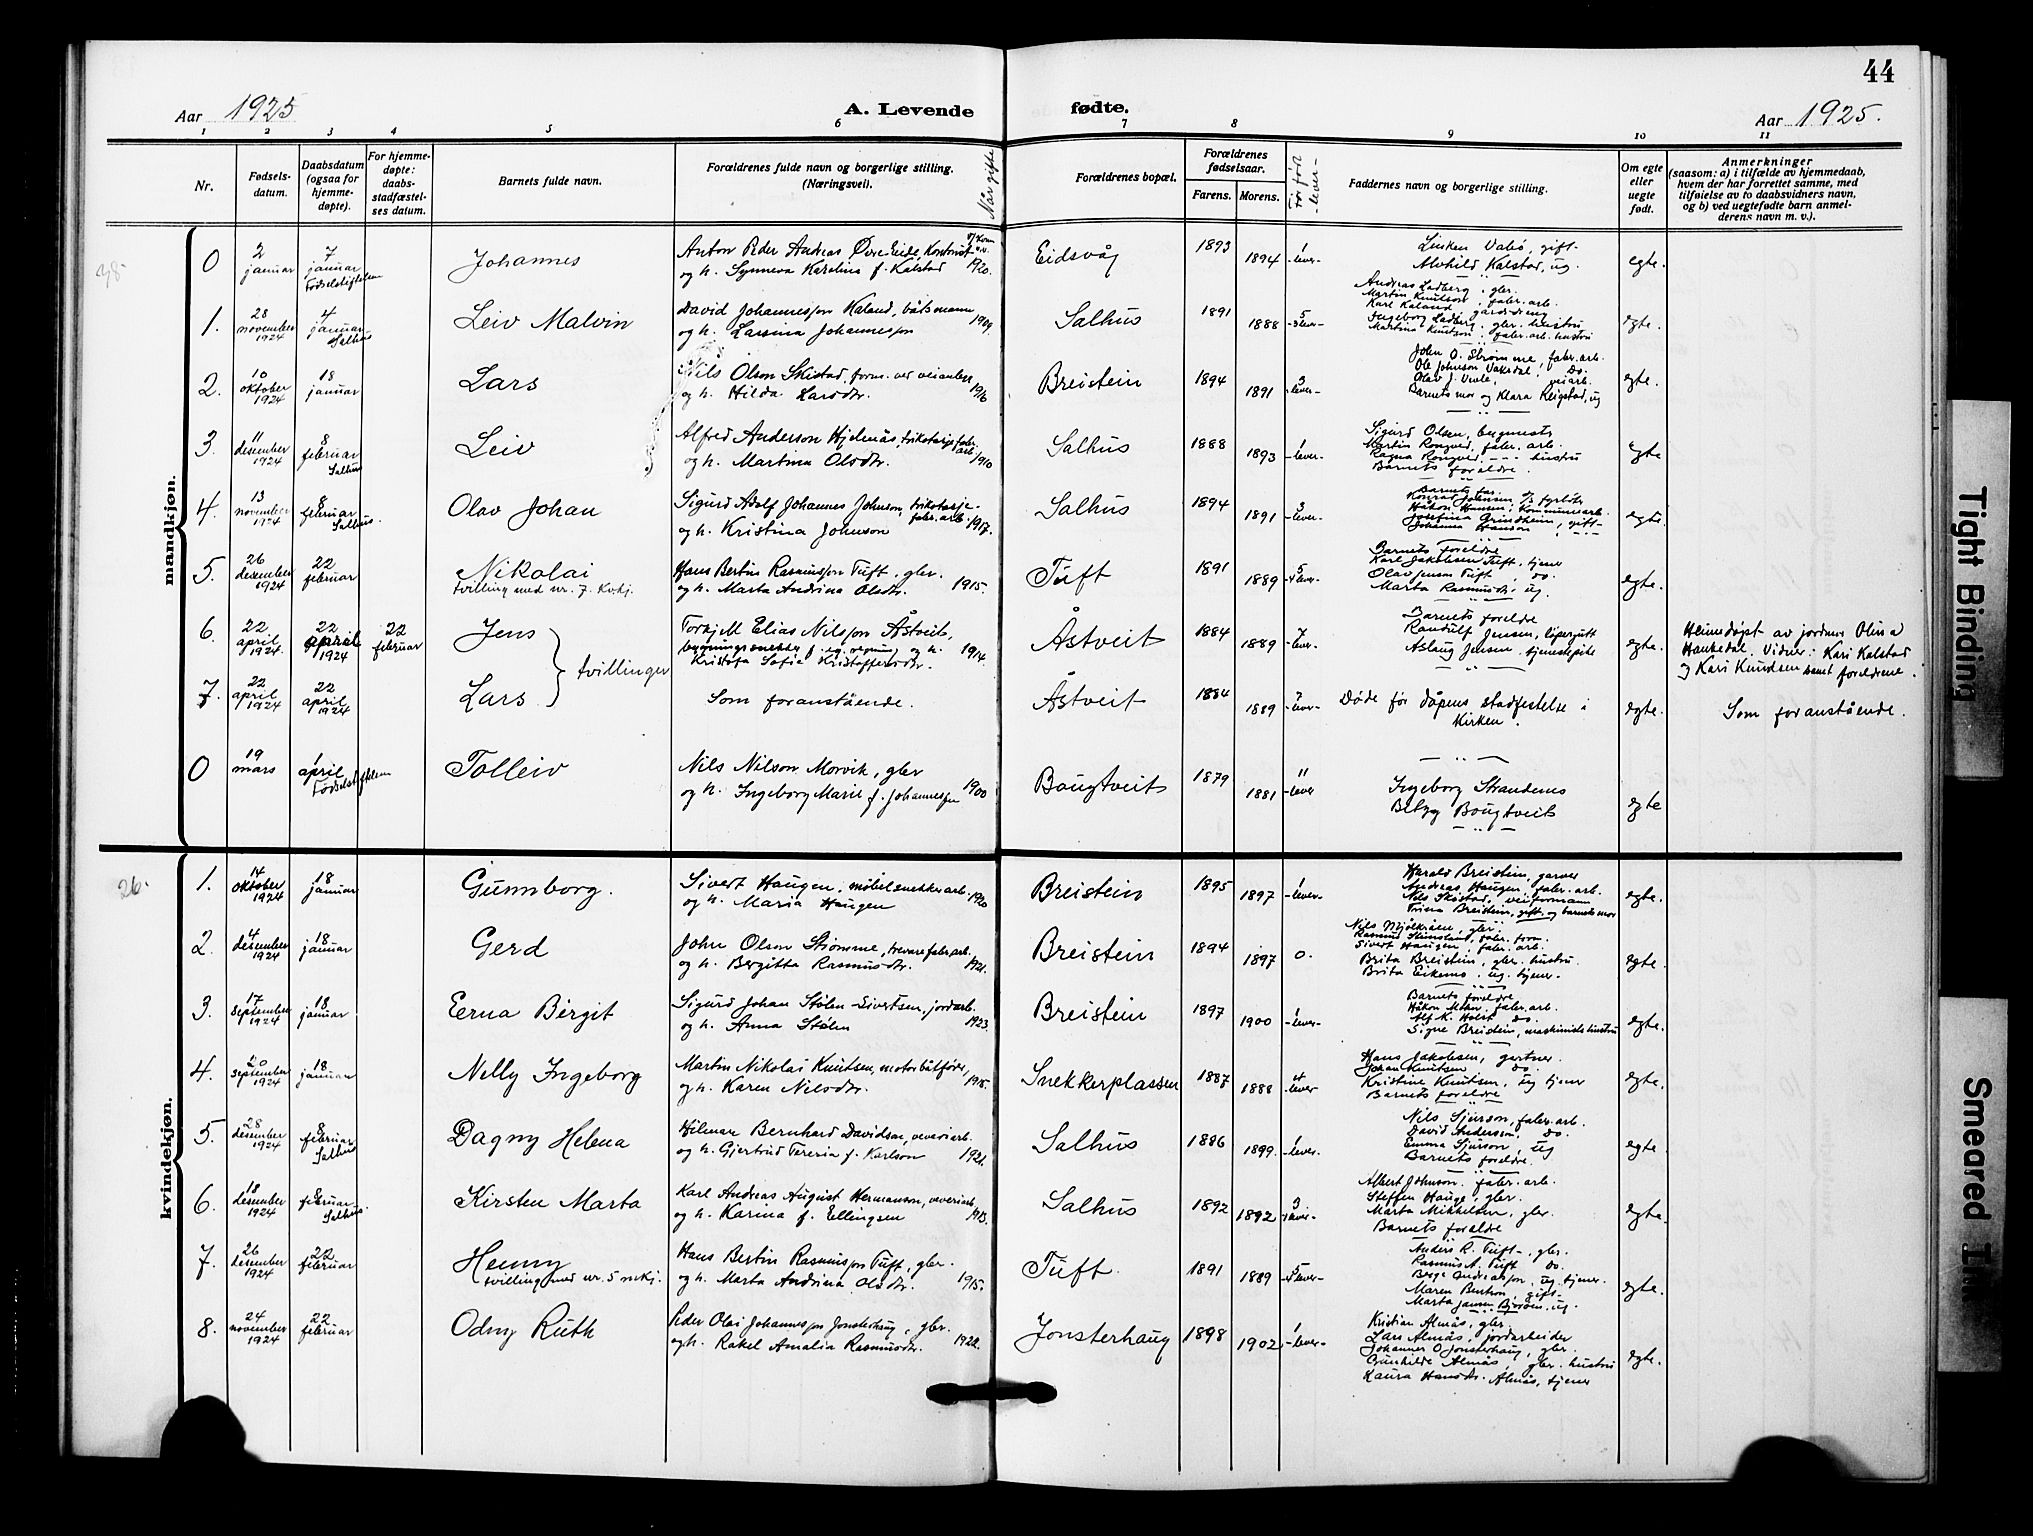 44
Aar 1925
A. Levende
fødte.
Aar 1925.
1 2 3 4 5 6 7 8 9 10 11
Nr.
Fødsels-
datum.
Daabsdatum
(ogsaa for
hjemme-
døpte).
For hjemme-
døpte:
daabs-
stadfæstel-
ses datum.
Barnets fulde navn.
Forældrenes fulde navn og borgerlige stilling.
(Næringsvei).
Når gifte
Forældrenes bopæl.
Forældrenes
fødselsaar.
Farens. Morens.
Faddernes navn og borgerlige stilling.
Om egte
eller
uegte
født.
Anmerkninger
(saasom: a) i tilfælde av hjemmedaab,
hvem der har forrettet samme, med
tilføielse av to daabsvidners navn,
og b) ved uegtefødte barn anmel-
derens navn m. v.).
mandkjøn.
38
0 2 januar 7 januar Fødselsstiftelsen
Johannes
Anton Peder Andreas Øvre-Eide,
og h. Synneva Karolina f. Kalstad 1920.
Eidsvåg 1893 1894 1 lever-
Linken Vabø, gift-
Alvhild Kalstad, ug.
egte.
1. 28 november 1924 4 januar Salhus
Leiv Malvin
David Johannessen Kaland, båtsmann
og h. Larsina Johannessen 1909.
Salhus 1891 1888 5
Andreas Ladberg, gbr.
Martin Knutson, fabr. arb.
Karl Kaland, gårdsdreng
Ingeborg Ladberg, gbr. hustru
Martina Knutson, fabr. arb. hustru
egte.
2. 10 oktober 1924 18 januar
Lars
Nils Olson Skistad, form. ved veianlegg
og h. Hilda Larsdtr. 1916
Breistein 1894 1891 3 lever-
John O. Strømme, fabr. arb.
Ole Johnson Vaksdal, do.
Olav J. veiarb.
Barnets mor og Klara Reigstad, ug
egte.
3. 11 desember 1924 8 februar Salhus
Leiv
Alfred Anderson Hjelmås, trikotasjefabr. arb.
og h. Martina Olsdtr. 1910
Salhus 1888 1893 1 lever-
Sigurd Olsen, bygmester
Martin Rongved, fabr. arb.
Ragna Rongved, hustru
Barnets foreldre.
egte
4. 13 november 1924 8 februar Salhus.
Olav Johan
Sigurd Adolf Johannes Johnson, trikotasje-
fabr. arb.
og h. Kristina Johnson 1917.
Salhus 1894 1891 3 lever-
Barnets far
Håkon Hansen, kommunearb.
Josefina Grindheim, gift-
Johanna Hanson,
egte.
5. 26 desember 1924 22 februar
Nikolai
tvilling med nr. 7. kvkj.
Hans Bertin Rasmussen Tuft, gbr.
og h. Marta Andrina Olsdtr. 1915.
Tuft 1891 1889 5
Barnets foreldre
Karl Jakobsen Tuft, tjener
Olav Jenson Tuft, do.
Marta Rasmusdtr. ug.
egte.
6. 22 april 1924. 22 april 1924 22 februar
Jens
Torkjell Elias Nilssen Åstveit,
bygningssnekker f. eg. regning og h.
Kristofa Sofia Kristoffersdtr. 1914.
Åstveit 1884 1889 7 lever-
Barnets foreldre
Randulf Jensen, løpergutt
Aslaug Jensen, tjenestepike
egte.
Heimedøpt av jordmor Olina
Haukedal. Vidner: Kari Kalstad
og Kari Knudsen samt foreldrene.
7. 22 april 1924 22 april 1924
Lars
tvillinger
Som foranstående.
Åstveit 1884 1889 7 lever-
Døde før dåpens stadfestelse i
kirken.
egte.
Som foranstående.
0 19 mars 1 april Fødselsstiftelsen
Tolleiv
Nils Nilson Morvik, gbr
og h. Ingeborg Marie f. Johannessen 1900
Bougtveit 1879 1881 11 lever
Ingeborg Strandenes
Betzy Bougtveit
egte
kvindekjøn.
26.
1. 14 oktober 1924 18 januar
Gunnborg.
Sivert Haugen, møbelsnekkerarb.
og h. Maria Haugen 1920
Breistein 1895 1897 1 lever-
Harald Breistein, garver
Andreas Haugen, fabr. arb.
Nils Skistad, veiformann
Trina Breistein, gift og barnets mor
egte.
2. 4 desember 1924 18 januar
Gerd
John Olson Strømme, trevarefabr.arb.
og h. Bergitta Rasmusdtr. 1921.
Breistein 1894 1897 0.
Nils Mjølkråen, gbr.
Rasmus fabr. form.
Sivert Haugen, fabr. arb.
Brita Breistein, gbr. hustru.
Brita Eikemo, ug. tjener-
egte.
3. 17 september 1924 18 januar
Erna Birgit
Sigurd Johan Stølen Sivertsen, jordarb.
og h. Anna Stølen 1923.
Breistein 1897 1900 1 lever-
Barnets foreldre
Håkon fabr. arb.
Alf K. Holst do.
Signe Breistein, maskinists hustru
egte.
4. 20 september 1924 18 januar
Nelly Ingeborg
Martin Nikolai Knutsen, motorbåtfører,
og h. Karen Nilsdtr. 1915.
Snekkerplassen 1887 1888 4 lever
Hans Jakobsen, gartner.
Johan Knutsen do.
Kristine Knutsen, ug tjener
Barnets foreldre
egte.
5. 28 desember 1924 8 februar Salhus
Dagny Helena
Hilmar Bernhard Davidson, veveriarb.
og h. Gjertrud Tereria f. Karlson 1921.
Salhus 1886 1899. 1 lever-
Nils Sjurson, fabr. arb.
David Anderson, do.
Emma Sjurson, ug
Barnets foreldre.
egte.
6. 18 desember 1924 8 februar Salhus.
Kirsten Marta
Karl Andreas August Hermanson, veveriarb.
og h. Karina f. Ellingsen 1913.
Salhus 1892 1892 3
Albert Johnson, fabr. arb.
Steffen Hauge, gbr.
Marta Mikkelsen, gbr.
Barnets foreldre
egte.
7. 26 desember 1924 22 februar
Henny
tvilling med nr. 5 mkj.
Hans Bertin Rasmussen Tuft, gbr.
og h. Marta Andrina Olsdtr. 1915.
Tuft. 1891 1889 5
Anders R. Tuft, gbr.
Rasmus A. Tuft do
Berge Andreassen, ug. tjener.
Maren Bentson, gift-
Marta Jansen ug.
egte.
8. 24 november 1924 22 februar
Odny Ruth
Peder Olai Johannessen Jonsterhaug, gbr.
og h. Rakel Amalia Rasmusdtr. 1922.
Jonsterhaug 1898 1902 1 lever-
Kristian Almås, gbr.
Lars Almås, jordarbeider
Johannes O Jonsterhaug, gbr.
Gunhilde Almås, gbr. hustru
Laura Hansdtr. Almås, tjener
egte.
Tight Binding
Smeared Ink